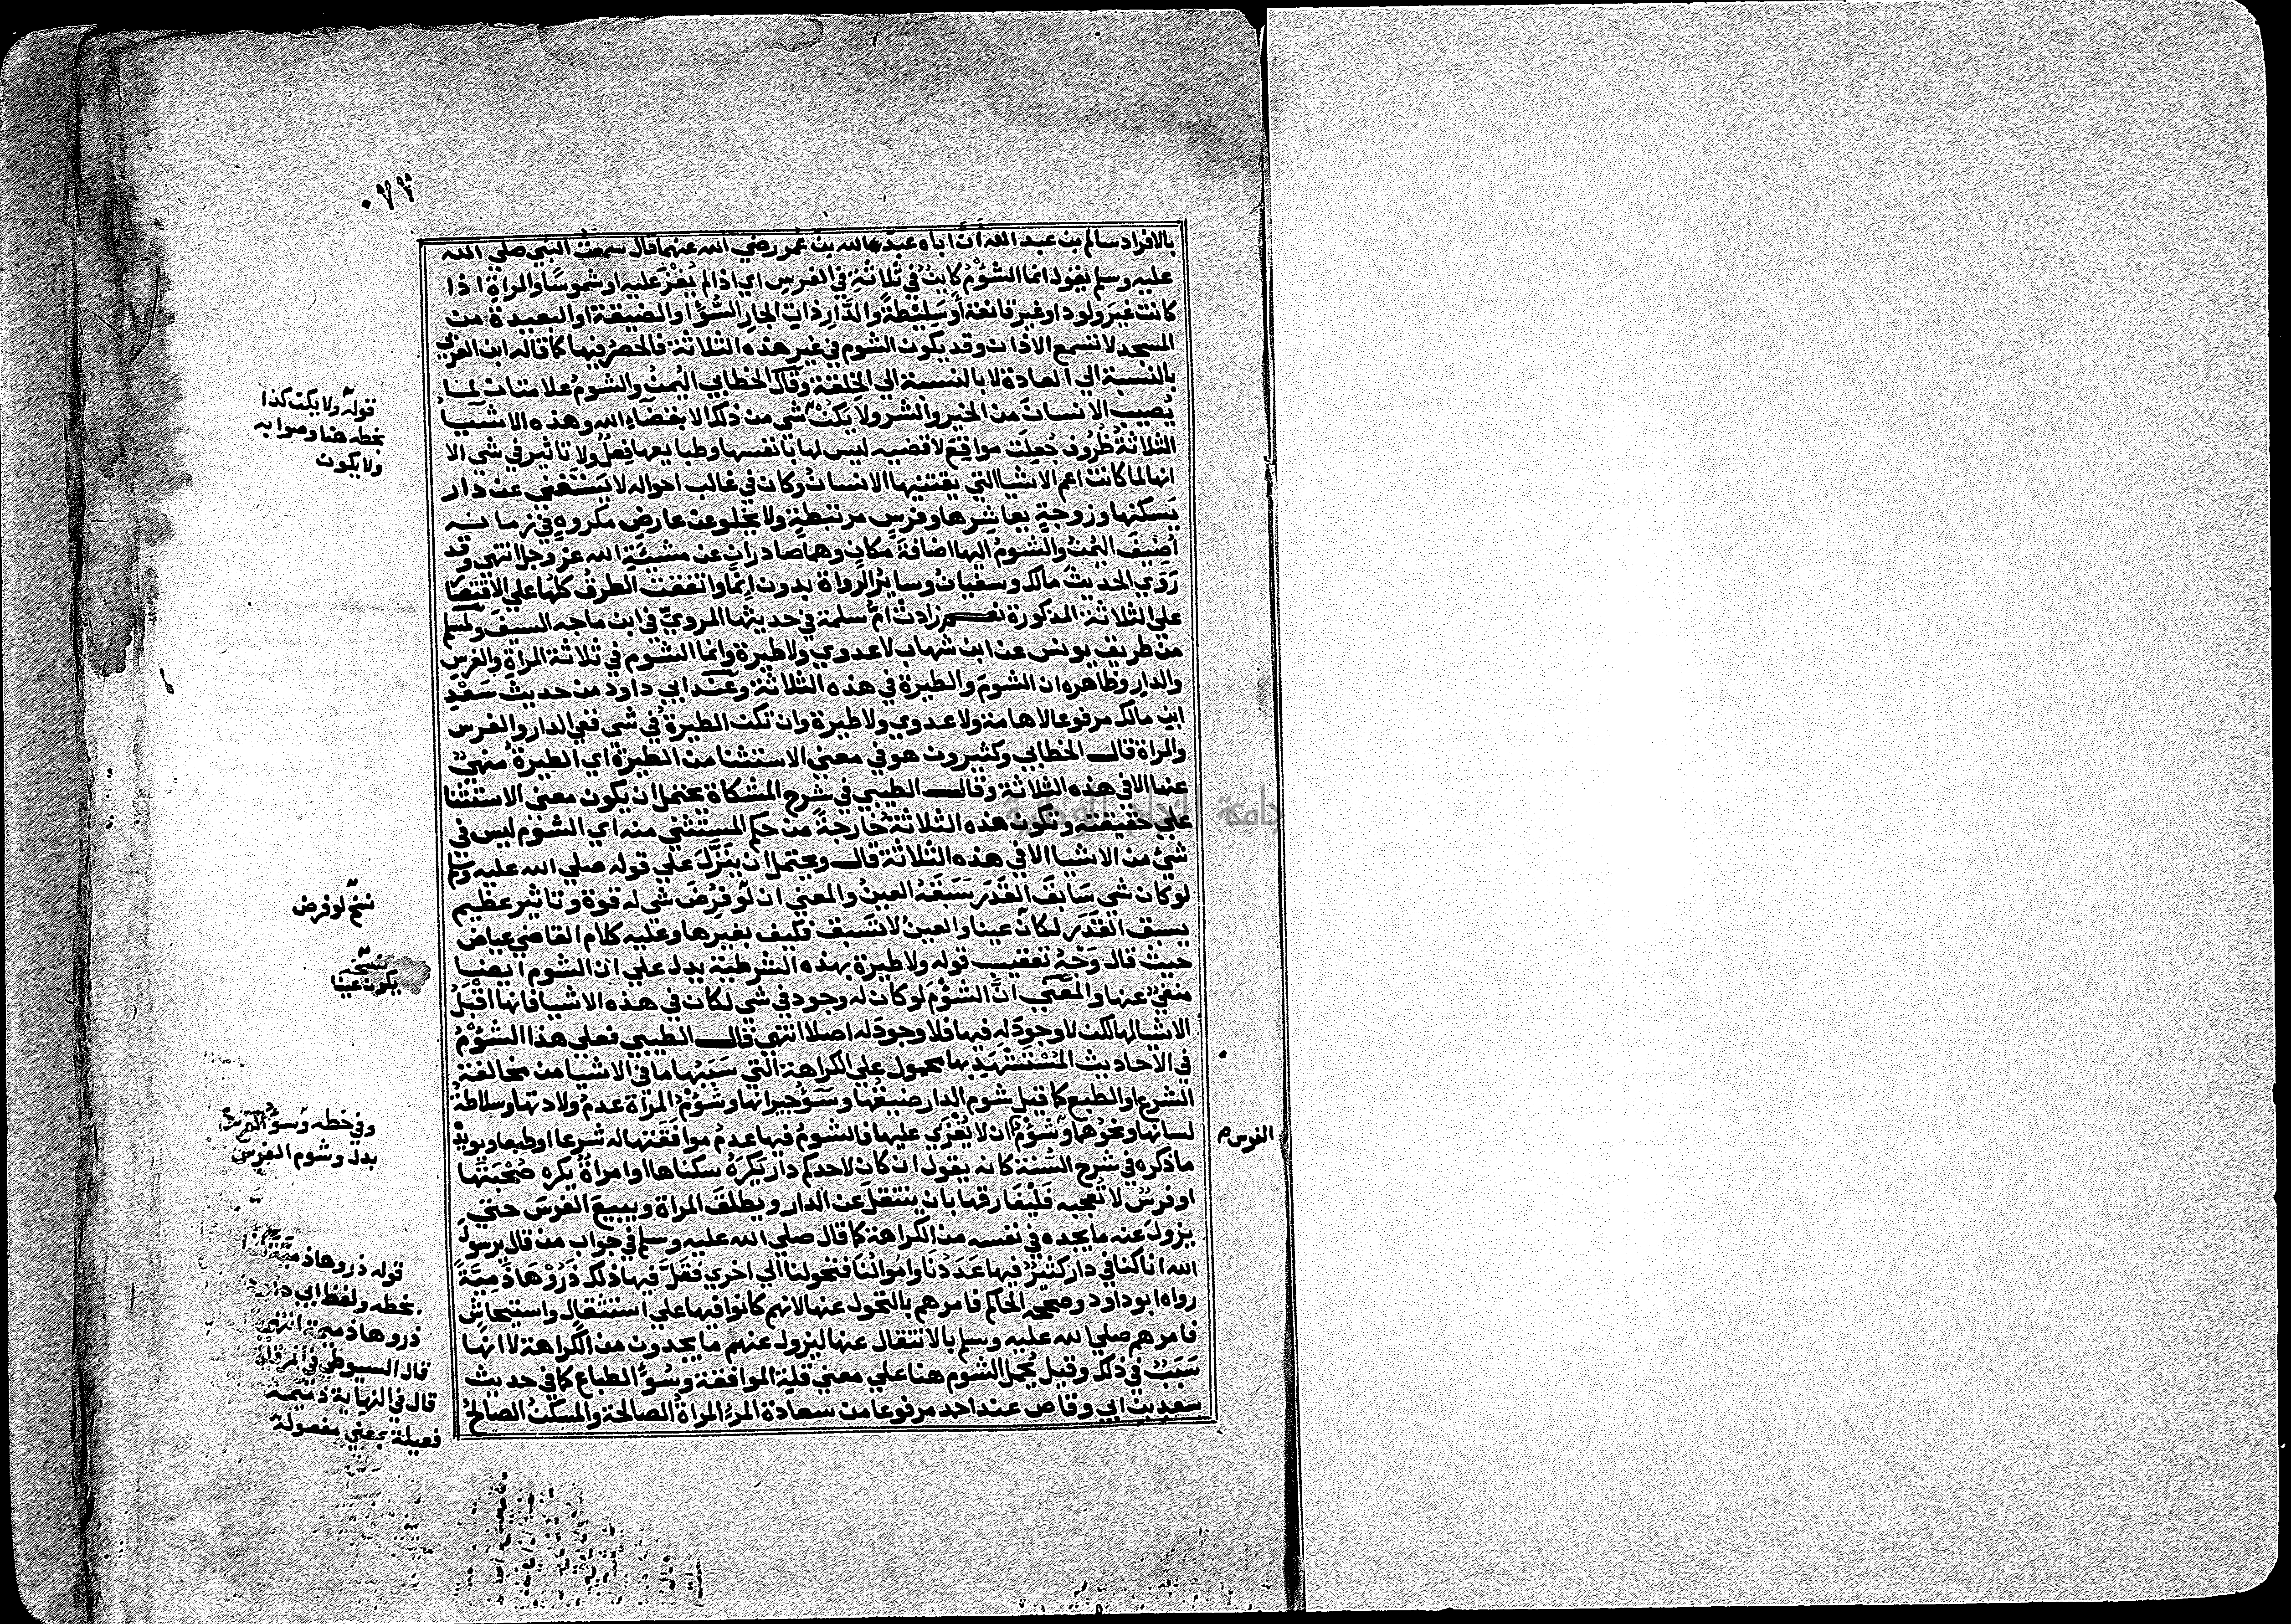 بالافراد سالم بن عبد الله أنّ اباه عبد الله بن عمر رضي الله عنهما قال سمعت النبي صلي الله
عليه وسلم يقول انما الشؤم كاين في ثلاثة في الفرس اي اذا لم يغز عليه او شموسا والمراة اذا
كانت غير ولود او غير قانعة أو سليطة والدّار ذات الجار السّوء او الضيقة او البعيدة من
المسجد لا تسمع الاذان وقد يكون الشوم في غير هذه الثلاثة فالحصر فيها كما قاله ابن العربي
بالنسبة الي العادة لا بالنسبة الي الخلقة وقال الخطابي اليمن والشوم علامتان لما
يصيب الانسان من الخير والشر ولا يكن شي من ذلك الا بقضاء الله وهذه الاشيا
الثلاثة ظروف جعلت مواقع لاقضيه ليس لها بانفسها وطبايعها فعل ولا تاثير في شي الا
انها لما كانت اعم الاشيا التي يقتنيها الانسان وكان في غالب احواله لا يستغني عن دار
يسكنها وزوجة يعاشرها وفرس مرتبطة ولا يخلو عن عارض مكروه في زمانه
اضيف اليمن والشوم اليها اضافة مكان وهما صادران عن مشيّة الله عز وجل انتهي وقد
روي الحديث مالك وسفيان وساير الرواة بدون انما واتفقت الطرق كلها علي الاقتصا
علي الثلاثة المذكورة نعم زادت امّ سلمة في حديثها المرويّ في ابن ماجه السيف ولمسلم
من طريق يونس عن ابن شهاب لا عدوي ولا طيرة وانما الشوم في ثلاثة المراة والفرس
والدار وظاهره ان الشوم والطيرة في هذه الثلاثة وعند ابي داود من حديث سعد
ابن مالك مرفوعا لا هامة ولا عدوي ولا طيرة وان تكن الطيرة في شي ففي الدار والفرس
والمراة قال الخطابي وكثيرون هو في معني الاستثنا من الطيرة اي الطيرة منهيّ
عنها الا في هذه الثلاثة وقال الطيبي في شرح المشكاة يحتمل ان يكون معني الاستثنا
علي حقيقته وتكون هذه الثلاثة خارجة من حكم المستثني منه اي الشوم ليس في
شي من الاشيا الا في هذه الثلاثة قال ويحتمل ان ينزّل علي قوله صلي الله عليه وسلم
لو كان شي سابق القدر سبقه العين والمعني ان لو فرض شي له قوة وتاثير عظيم
يسبق القدر لكان عينا والعين لا تسبق فكيف بغيرها وعليه كلام القاضي عياض
حيث قال وجه تعقيب قوله ولا طيرة بهذه الشرطية يدل علي ان الشوم ايضا
منفيّ عنها والمعني انّ الشؤم لو كان له وجود في شي لكان في هذه الاشيا فانها اقبل
الاشيا لها لكن لا وجود له فيها فلا وجود له اصلا انتهي قال الطيبي فعلي هذا الشؤم
في الاحاديث المستشهد بها محمول علي الكراهة التي سببها ما في الاشيا من مخالفة
الشرع او الطبع كما قيل شوم الدار ضيقها وسوء جيرانها وشؤم المراة عدم ولادتها وسلاطة
لسانها ونحوهما وشؤم ان لا يغزي عليها فالشوم فيها عدم موافقتها له شرعا او طبعا ويويد
ما ذكره في شرح السّنة كانه يقول ان كان لاحدكم دار يكره سكناها او امراة يكره صحبتها
او فرس لا تعجبه فليفارقها بان ينتقل عن الدار ويطلق المراة ويبيع الفرس حتي
يزول عنه ما يجده في نفسه من الكراهة كما قال صلي الله عليه وسلم في جواب من قال يرسول
الله انا كنا في دار كثير فيها عددنا واموالنا فتحولنا الي اخري فقلّ فيها ذلك ذروها ذميّة
رواه ابو داود وصححه الحاكم فامرهم بالتحول عنها لانهم كانوا فيها علي استثقال واستيحاش
فامرهم صلي الله عليه وسلم بالانتقال عنها ليزول عنهم ما يجدون من الكراهة لا انها
سبب في ذلك وقيل يحمل الشوم هنا علي معني قلة الموافقة وسوء الطباع كما في حديث
سعد بن ابي وقاص عند احمد مرفوعا من سعادة المرء المراة الصالحة والمسكن الصالح
قوله ولا يكن كذا
بخطه هنا وصوابه
ولا يكون
نسخ لو فرض
نسخه
يكون عينا
وفي خطه وسوء الفرس
بدل وشوم الفرس
الفرس صح
قوله ذروها ذميّة كذا
بخطه ولفظ ابي داود
ذروها ذميمة انتهي
قال السيوطي في المرقاة
قال في النهاية ذميمة
فعيلة بمعني مفعولة